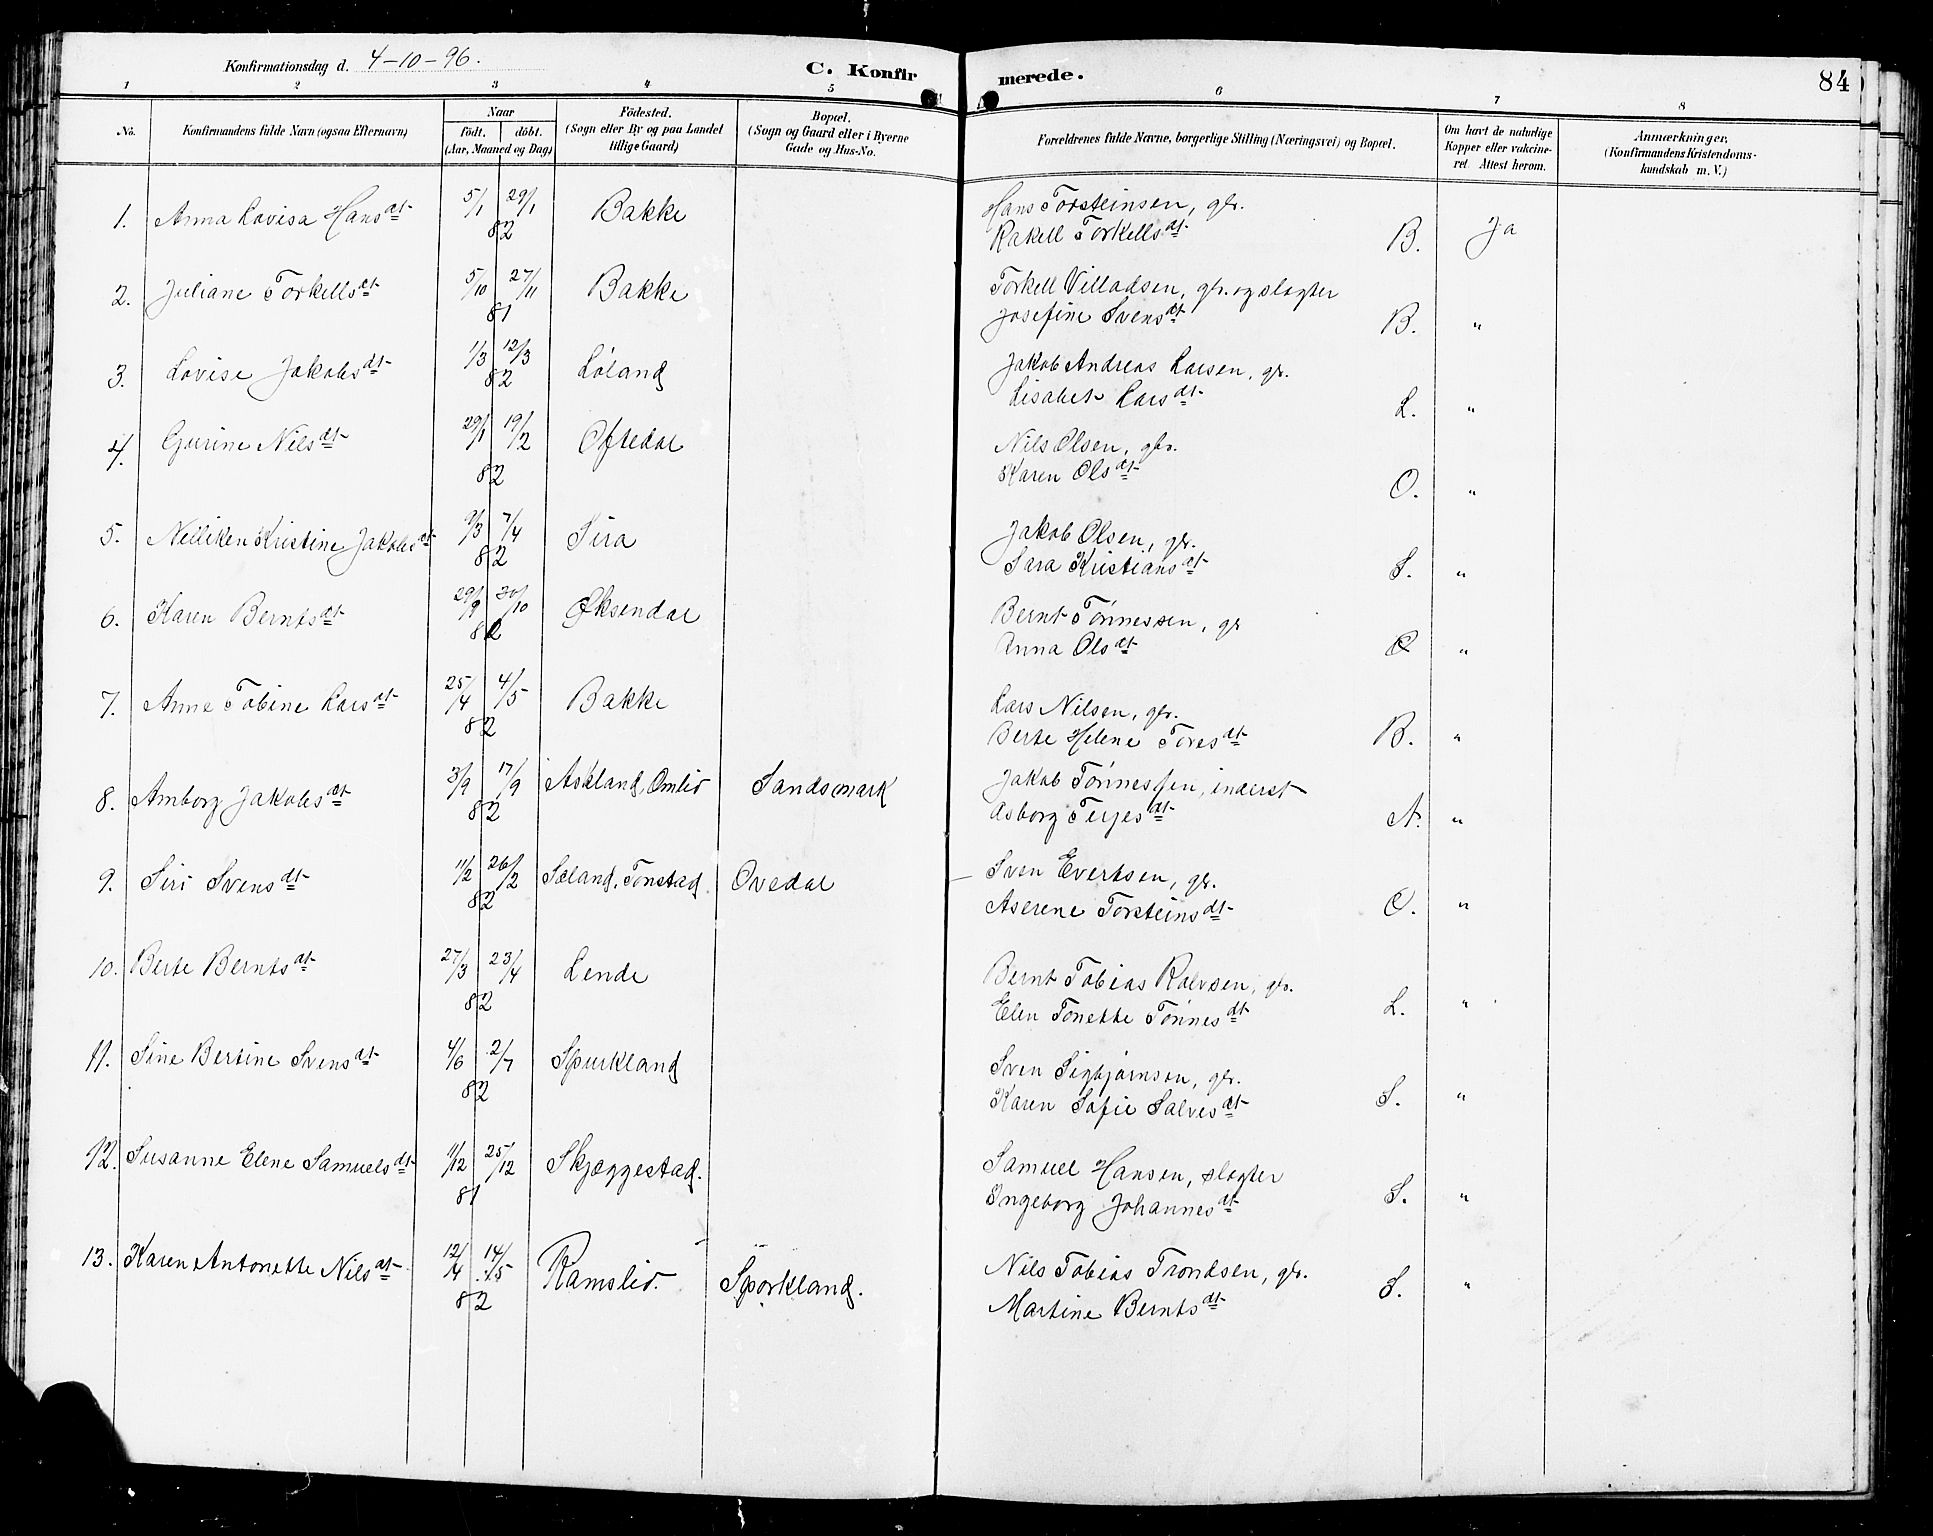 Konfirmationsdag d. 4-10-96.
C. Konfirmerede.
84
1 2 3 4 5 6 7 8
No. | Konfirmandens fulde Navn (ogsaa Efternavn) | Naar födt. döbt. (Aar, Maaned og Dag) | Födested. (Sogn eller By og paa Landet tillige Gaard) | Bopæl. (Sogn og Gaard eller i Byerne Gade og Hus-No. | Forældrenes fulde Navne, borgerlige Stilling (Næringsvei) og Bopæl. | Om havt de naturlige Kopper eller vakcineret Attest herom. | Anmærkninger, (Konfirmandens Kristendomskundskab m. V.)
1. Anna Lovisa Hansdt 5/1 29/1 82 Bakke Hans Torsteinsen, gbr.
Rakell Torkellsdt B. Ja
2. Juliane Torkellsdt 5/10 27/11 81 Bakke Torkell Villadsen, gbr. og slagter
Josefine Svensdt B. "
3. Lovise Jakobsdt 1/3 12/3 82 Løland Jakob Andreas Larsen, gbr.
Lisabet Larsdt L. "
4. Gurine Nilsdt 29/1 19/2 82 Oftedal Nils Olsen, gbr.
Karen Olsdt O. "
5. Nelliken Kristine Jakobsdt 9/3 7/4 82 Sira Jakob Olsen, gbr.
Sara Kristiansdt S. "
6. Karen Berntsdt 29/9 30/10 82 Øksendal Bernt Tønnessen, gbr
Anna Olsdt Ø "
7. Anne Tobine Larsdt 25/4 4/5 82 Bakke Lars Nilsen, gbr.
Berte Helene Toresdt B. "
8. Amborg Jakobsdt 3/9 17/9 82 Askland, Omlid Sandsmark Jakob Tønnessen, inderst
Asborg Terjesdt A. "
9. Siri Svensdt 11/2 26/2 82 Sæland, Tonstad. Ovedal Sven Evertsen, gbr.
Aserene Torsteinsdt O. "
10. Berte Berntsdt 27/3 23/4 82 Lende Bernt Tobias Ralvsen, gbr.
Elen Tonette Tønnesdt L. "
11. Sine Bertine Svensdt 4/6 2/7 82 Spurkland Sven Sigbjørnsen, gbr.
Karen Sofie Salvesdt S. "
12. Susanne Elene Samuelsdt 11/12 25/12 81 Skjæggestad. Samuel Hansen, slagter
Ingeborg Johannesdt S. "
13. Karen Antonette Nilsdt 12/4 14/5 82 Ramslid. Sporkland. Nils Tobias Trondsen, gbr.
Martine Berntsdt S. "